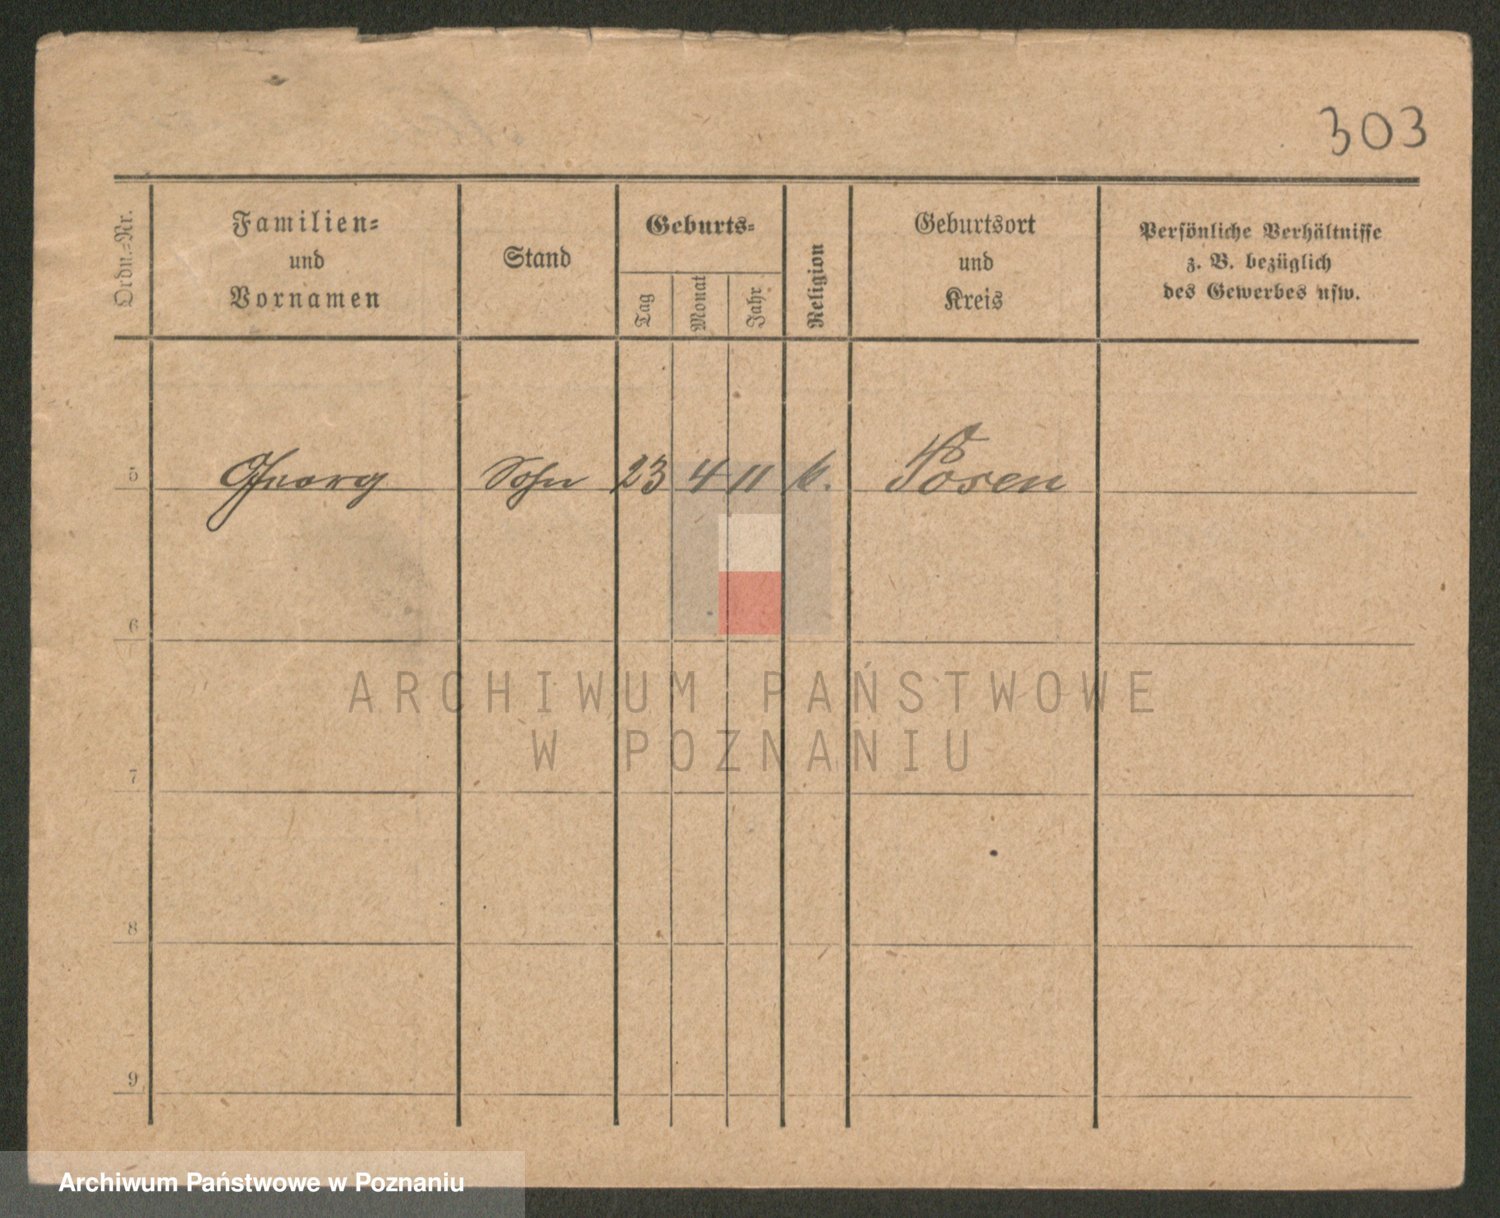 303
Ordn.-Nr.
Familien-
und
Vornamen
Stand
Geburts-
Tag
Monat
Jahr
Religion
Geburtsort
und
Kreis
Persönliche Verhältnisse
z. B. bezüglich
des Gewerbes usw.
5 Georg Sohn 23 4 11 k. Posen
6
ARCHIWUM PAŃSTWOWE
W POZNANIU
7
8
9
Archiwum Państwowe w Poznaniu